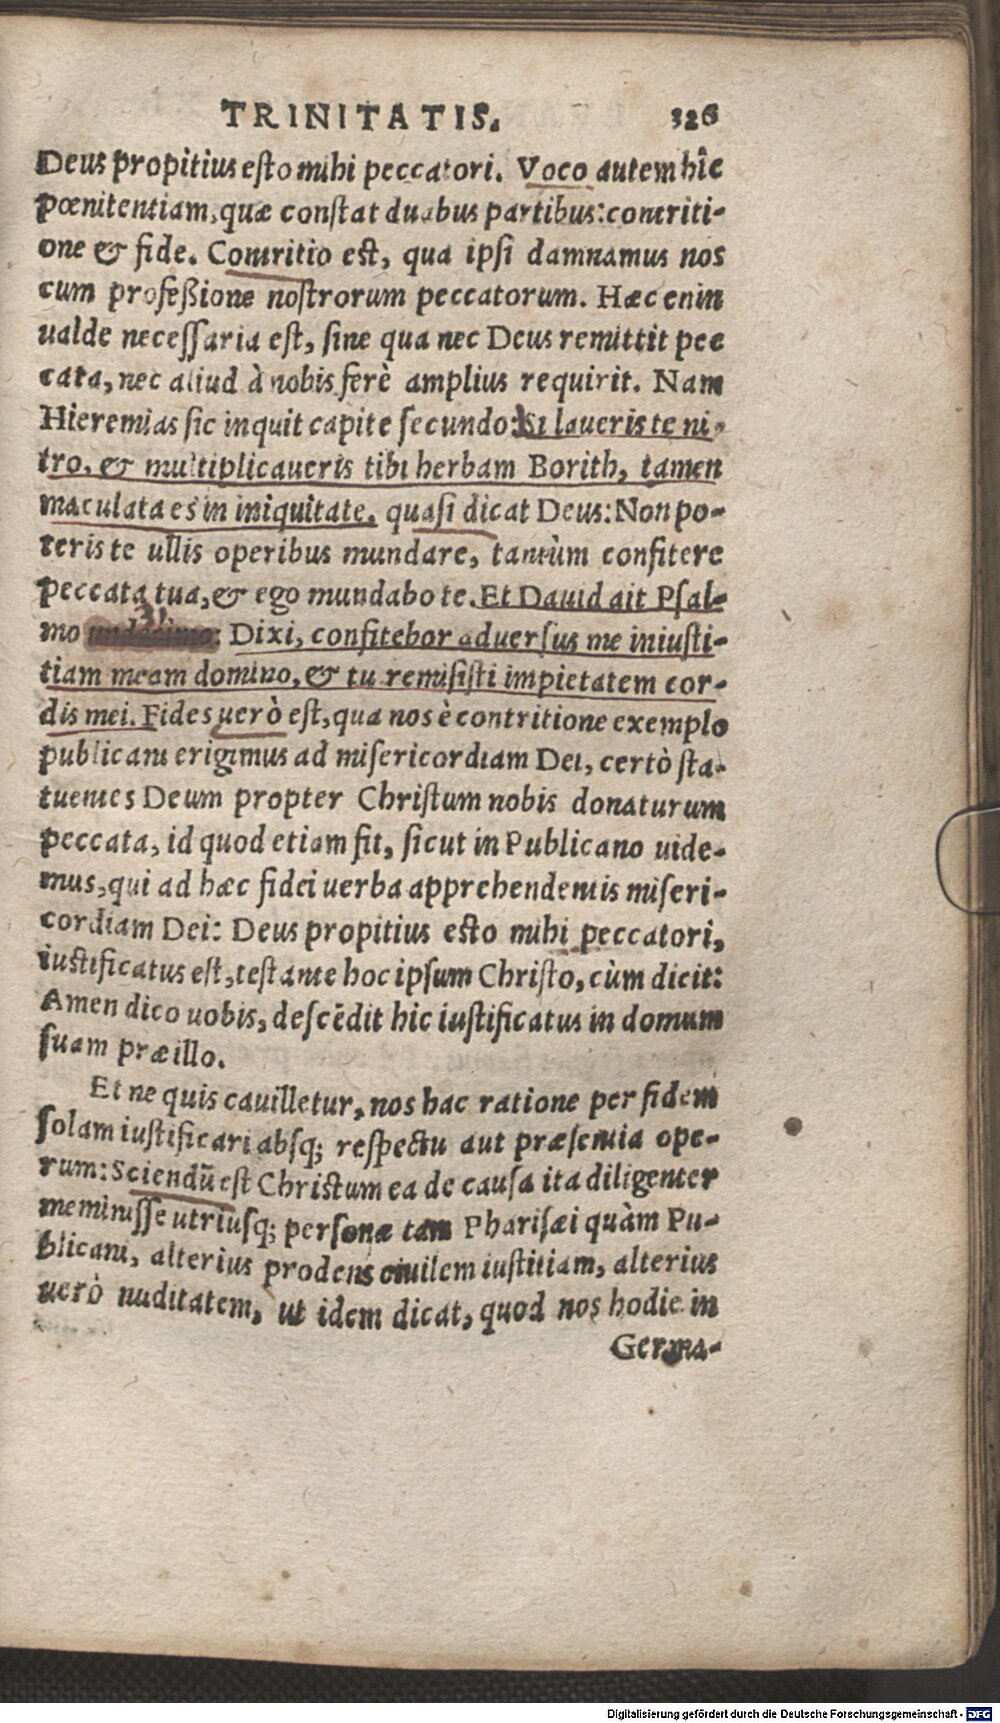 TRINITATIS. 326
Deus propitius esto mihi peccatori. Voco autem hîc
pœnitentiam, quæ constat duabus partibus: contriti-
one & fide. Contritio est, qua ipsi damnamus nos
cum professione nostrorum peccatorum. Hæc enin
ualde necessaria est, sine qua nec Deus remittit pec
cata, nec aliud à nobis ferè amplius requirit. Nam
Hieremias sic inquit capite secundo: Si laueris te ni-
tro, & multiplicaueris tibi herbam Borith, tamen
maculata es in iniquitate, quasi dicat Deus: Non po-
teris te ullis operibus mundare, tantùm confitere
peccata tua, & ego mundabo te. Et Dauid ait Psal-
31.
mo undecimo: Dixi, confitebor aduersus me iniusti-
tiam meam domino, & tu remisisti impietatem cor-
dis mei. Fides uerò est, qua nos è contritione exemplo
publicani erigimus ad misericordiam Dei, certò sta-
tuentes Deum propter Christum nobis donaturum
peccata, id quod etiam fit, sicut in Publicano uide-
mus, qui ad hæc fidei uerba apprehendentis miseri-
cordiam Dei: Deus propitius esto mihi peccatori,
iustificatus est, testante hoc ipsum Christo, cùm dicit:
Amen dico uobis, descēdit hic iustificatus in domum
suam præ illo.
Et ne quis cauilletur, nos hac ratione per fidem
solam iustificari absq; respectu aut præsentia ope-
rum: Sciendū est Christum ea de causa ita diligenter
meminisse utriusq; personæ tam Pharisæi quàm Pu-
blicani, alterius prodens ciuilem iustitiam, alterius
uerò nuditatem, ut idem dicat, quod nos hodie in
Germa-
Digitalisierung gefördert durch die Deutsche Forschungsgemeinschaft - DFG